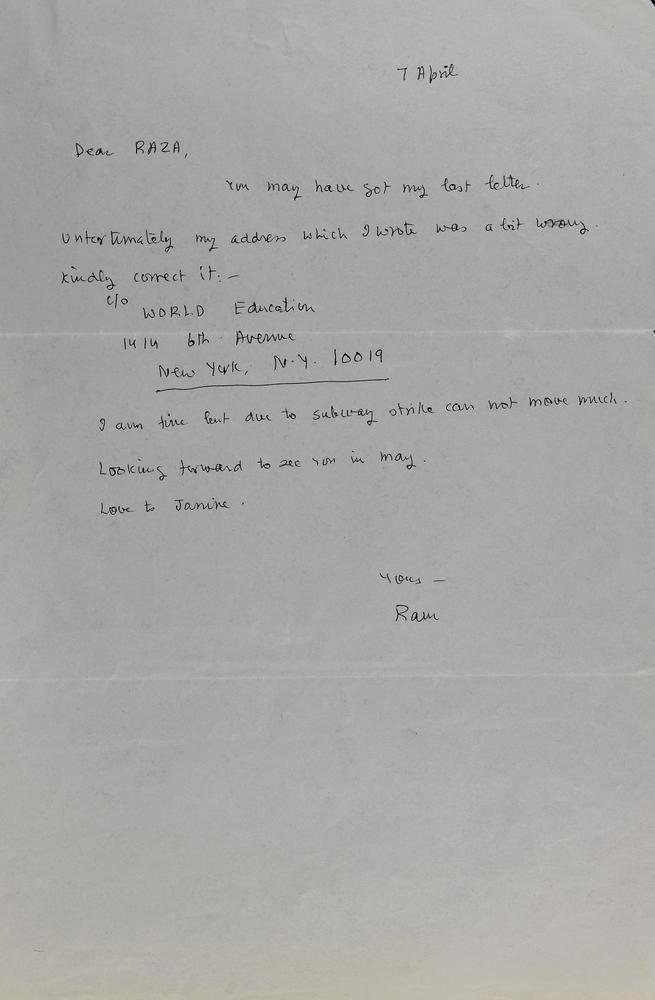 7 April
Dear RAZA,
You may have got my last letter.
Unfortunately my address which I wrote was a bit wrong.
Kindly correct it:-
c/o WORLD Education
1414 6th Avenue
New York, N.Y. 10019
I am fine but due to subway strike can not move much.
Looking forward to see you in May.
Love to Janine.
Yours -
Ram